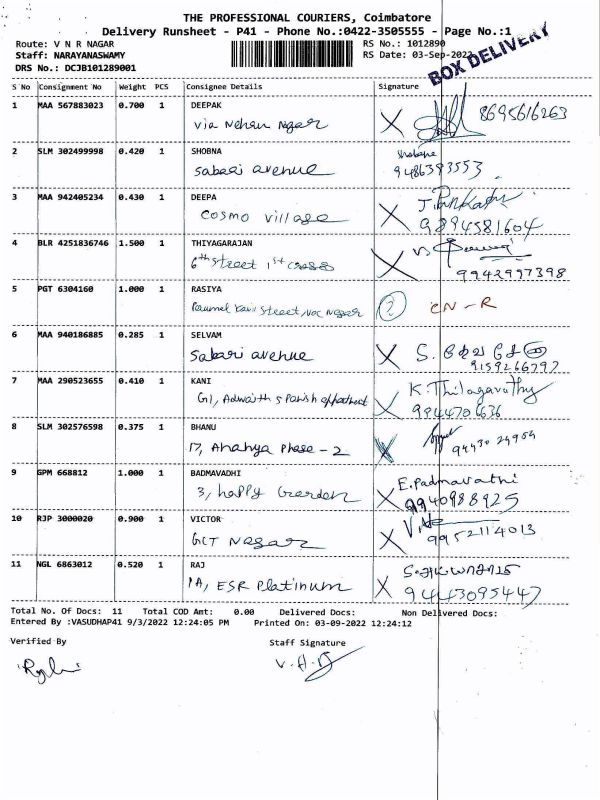 THE PROFESSIONAL COURIERS, Coimbatore
Delivery Runsheet - P41 - Phone No.:0422-3505555 - Page No.:1
Route: V N R NAGAR RS No.: 1012890
Staff: NARAYANASWAMY RS Date: 03-Sep-2022
DRS No.: DCJB101289001
BOX DELIVERY
S No Consignment No Weight PCS Consignee Details Signature
1 MAA 567883023 0.700 1 DEEPAK
Via Nehru Nagar 8695616263
2 SLM 302499998 0.420 1 SHOBNA
Sabari avenue 9486393553
3 MAA 942405234 0.430 1 DEEPA
Cosmo village 9894581604
4 BLR 4251836746 1.500 1 THIYAGARAJAN
6th Street 1st cross 9942997398
5 PGT 6304160 1.000 1 RASIYA
Street, VOC Nagar 2 CN - R
6 MAA 940186885 0.285 1 SELVAM
Sabari avenue 9159266797
7 MAA 290523655 0.410 1 KANI K. Thilagavathy
G1, Adwaith 9944706636
8 SLM 302576598 0.375 1 BHANU
17, Ananya Phase - 2 94430 24954
9 GPM 668812 1.000 1 BADMAVADHI E. Padmavathi
3, happy Garden 9940988925
10 RJP 3000020 0.900 1 VICTOR
GCT Nagar 9952114013
11 NGL 6863012 0.520 1 RAJ
1A, ESR Platinum 9443095447
Total No. Of Docs: 11 Total COD Amt: 0.00 Delivered Docs: Non Delivered Docs:
Entered By :VASUDHAP41 9/3/2022 12:24:05 PM Printed On: 03-09-2022 12:24:12
Verified By Staff Signature